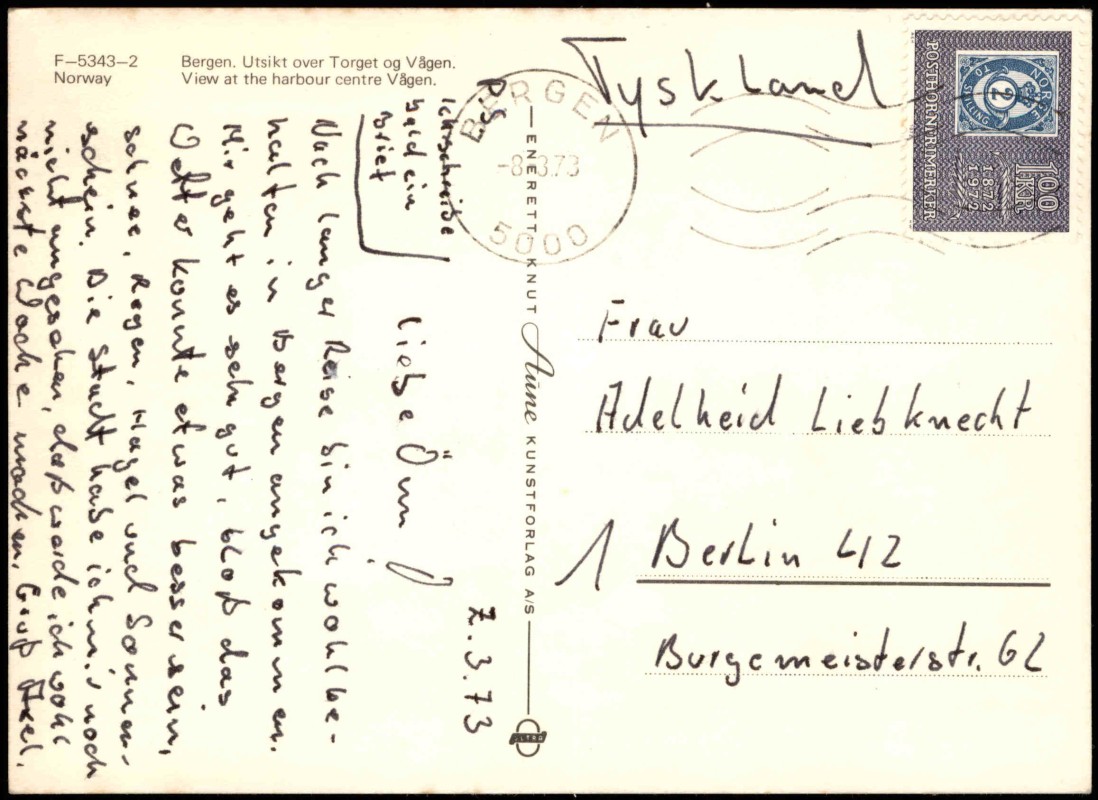 F-5343-2
Norway
Bergen. Utsikt over Torget og Vågen.
View at the harbour centre Vågen.
PS
Ich schreibe
bald ein
Brief
7.3.73
Liebe Ömi!
Nach langer Reise bin ich wohlbe-
halten in Bergen angekommen.
Mir geht es sehr gut, bloß das
Wetter konnte etwas besser sein,
Schnee, Regen, Hagel und Sonnen-
schein. Die Stadt habe ich mir noch
nicht angesehen, daß werde ich wohl
nächste Woche machen. Gruß Axel.
ENERETT: KNUT Aune KUNSTFORLAG A/S
BERGEN
-8.3.73
5000
Tyskland
POSTHORNFRIMERKER
NORGE
2
TO SKILLING
1872
1972
1KR
100
Frau
Adelheid Liebknecht
1 Berlin 42
Burgemeisterstr. 62